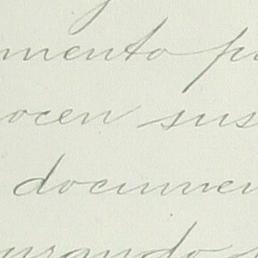 mento p
ocen sus
documen
urando